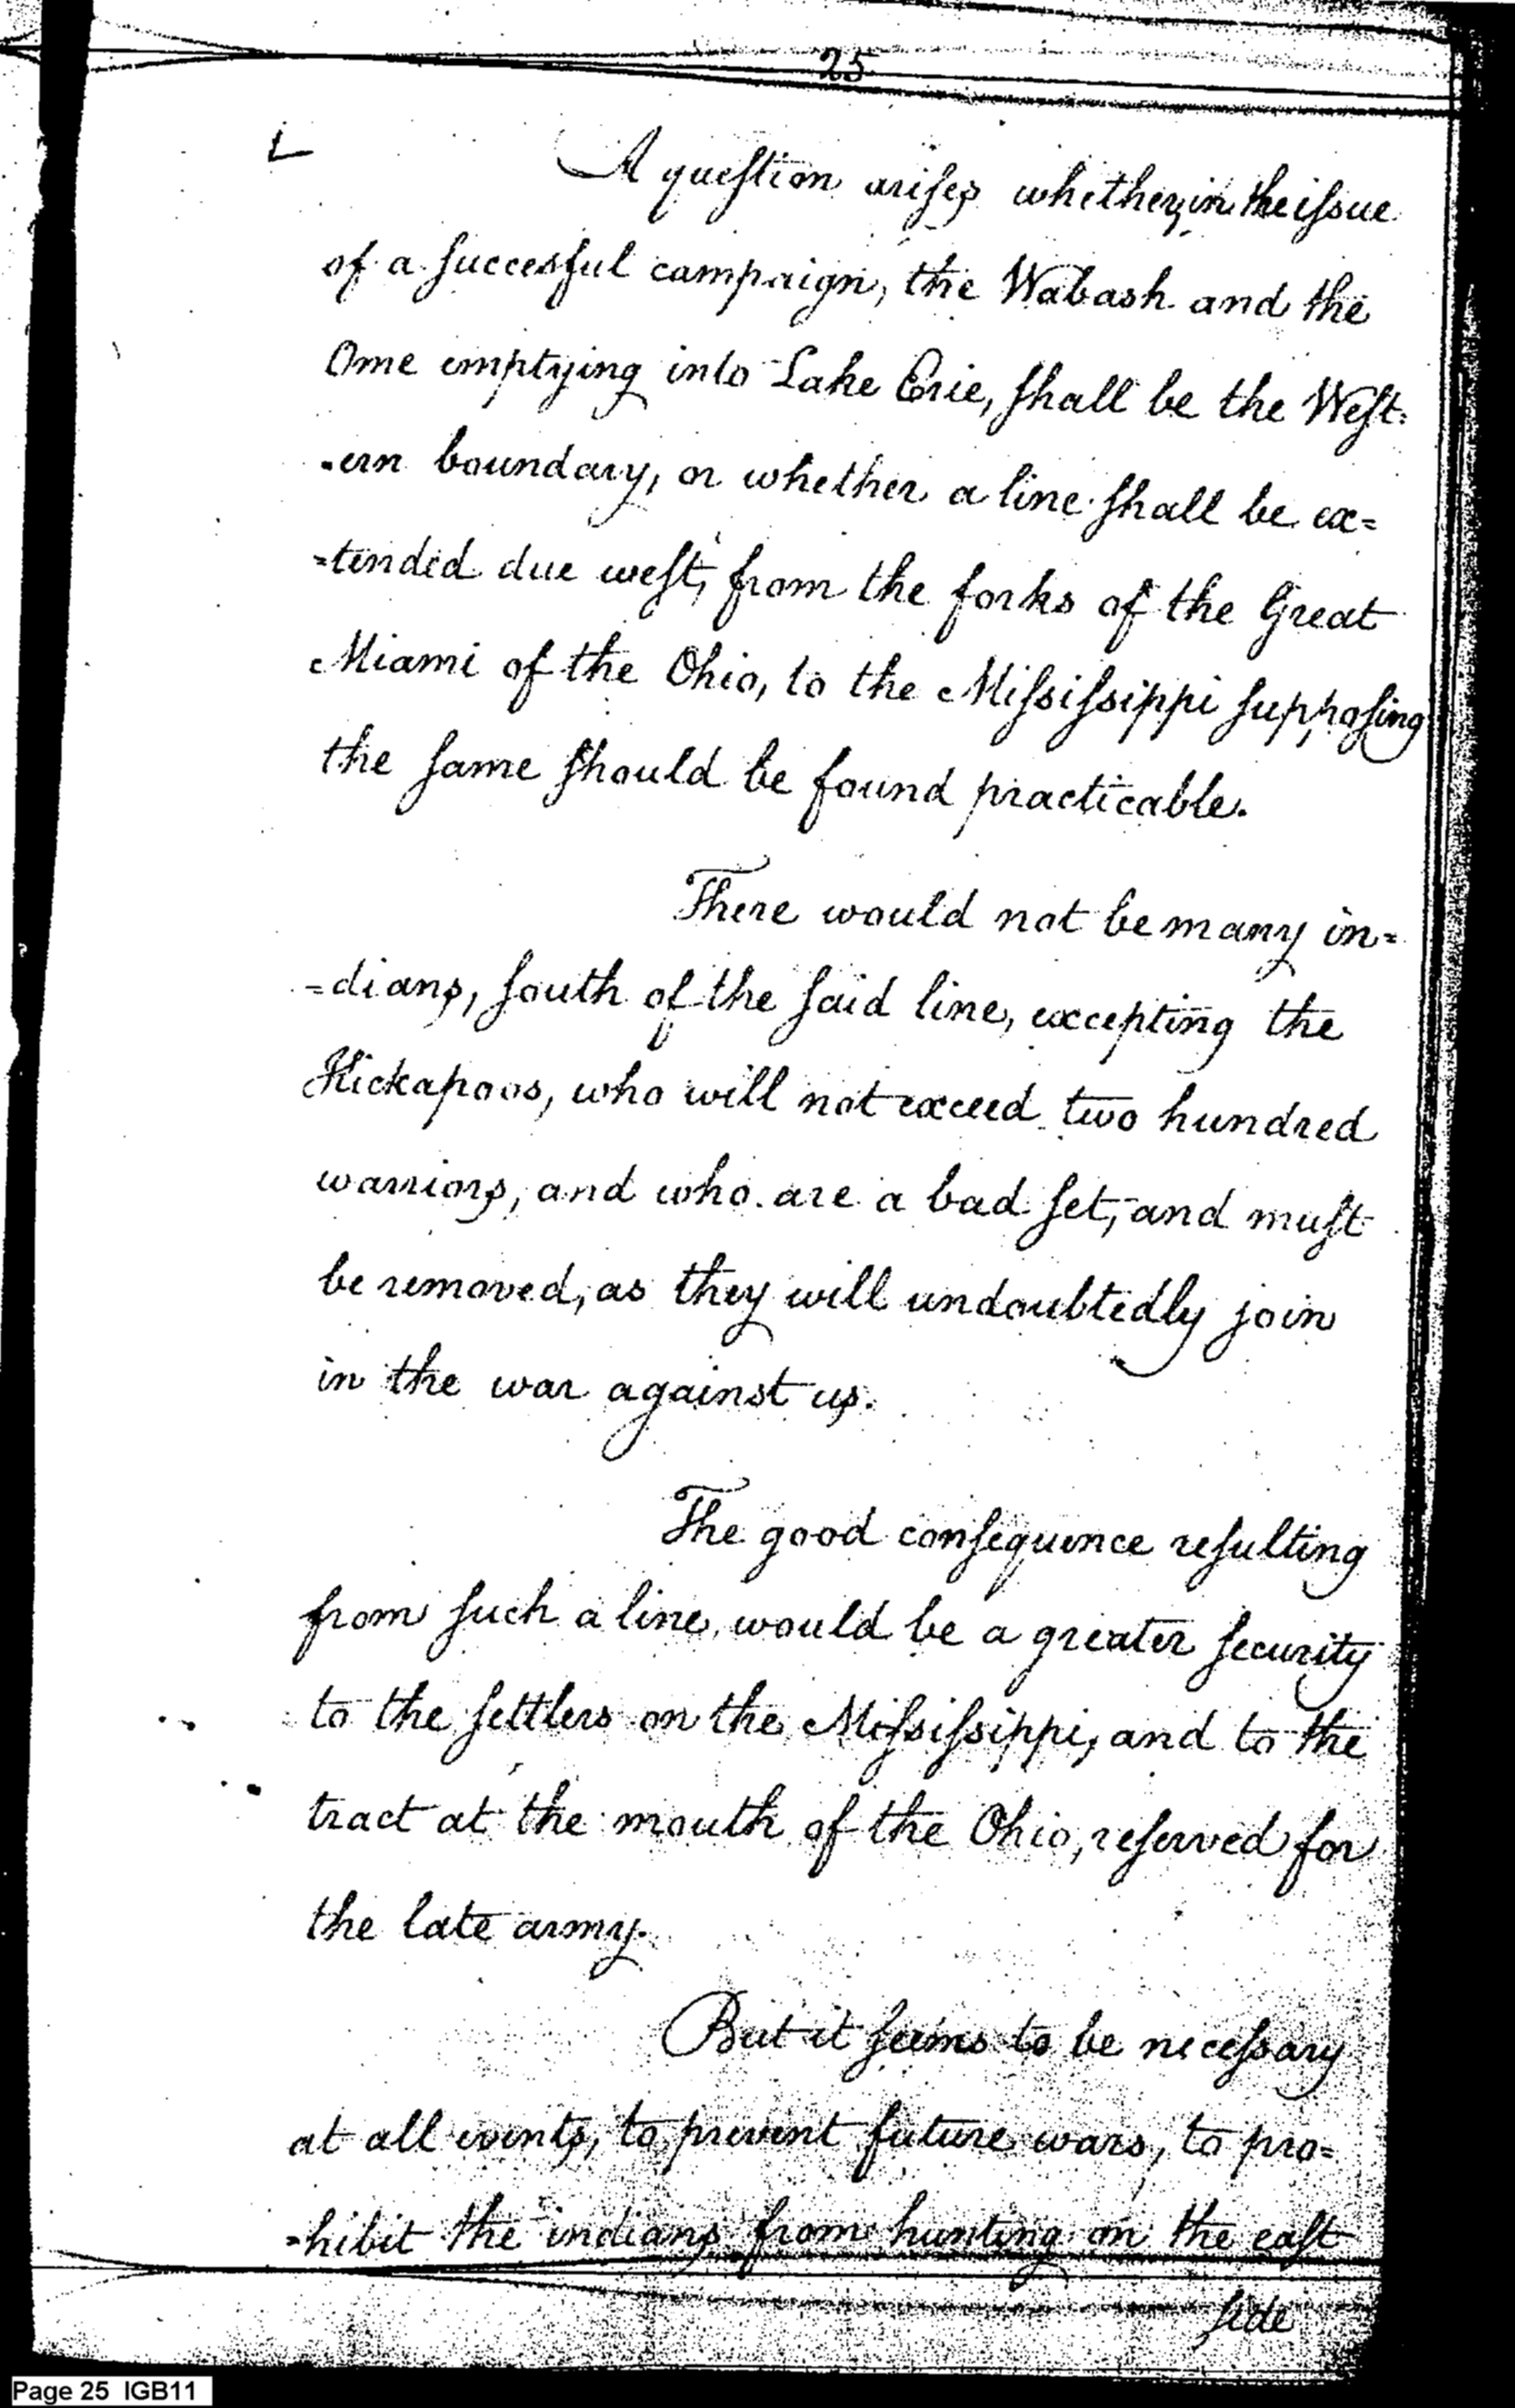 25
A question arises whether, in the issue
of a succesful campaign, the Wabash and the
Ome emptying into Lake Erie, shall be the West-
-ern boundary, or whether a line shall be ex=
=tended due west, from the forks of the Great
Miami of the Ohio, to the Mississippi supposing
the same should be found practicable.
There would not be many in=
=dians, south of the said line, excepting the
Kickapoos, who will not exceed two hundred
warriors, and who are a bad set, and must
be removed, as they will undoubtedly join
in the war against us.
The good consequence resulting
from such a line, would be a greater security
to the settlers on the Mississippi, and to the
tract at the mouth of the Ohio, reserved for
the late army.
But it seems to be necessary
at all events, to prevent future wars, to pro=
=hibit the indians from hunting on the east
side
Page 25 IGB11